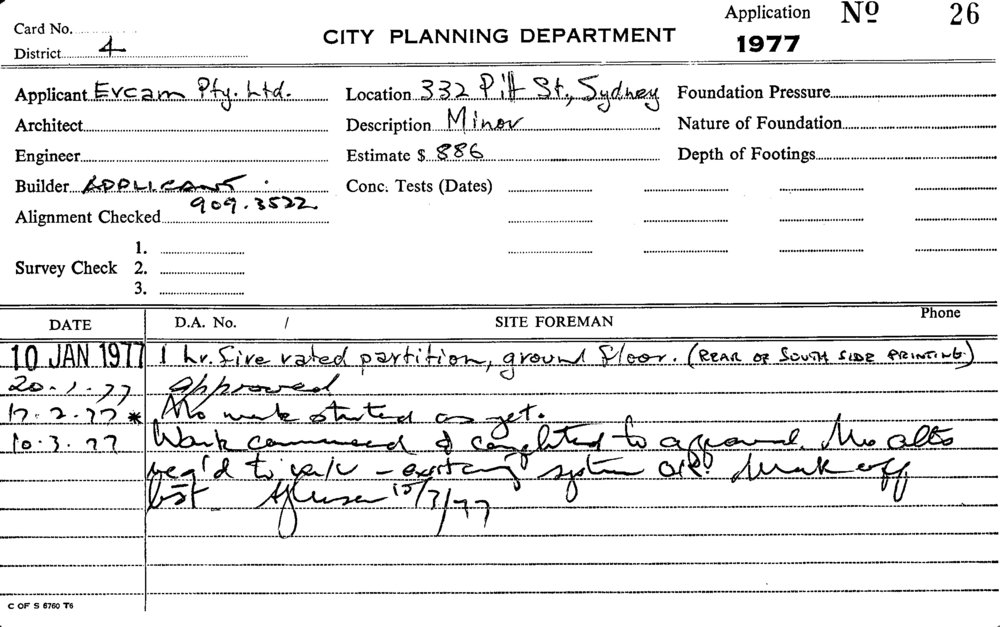 Card No.
District 4
CITY PLANNING DEPARTMENT
Application No 26
1977
Applicant Evcam Pty. Ltd.
Location 332 Pitt St., Sydney
Foundation Pressure
Architect
Description Minor
Nature of Foundation
Engineer
Estimate $ 886
Depth of Footings
Builder APPLICANT.
Conc. Tests (Dates)
909.3522
Alignment Checked
Survey Check
1.
2.
3.
DATE
D.A. No. /
SITE FOREMAN
Phone
10 JAN 1977 1 hr. fire rated partition, ground floor. (REAR OF SOUTH SIDE PRINTING)
20.1.77 approved
17.2.77 * No work started as yet.
10.3.77 Work commenced & completed to approval. No alts
req'd to - existing system OK. Mark off
list 10/3/77
C OF S 6760 T6